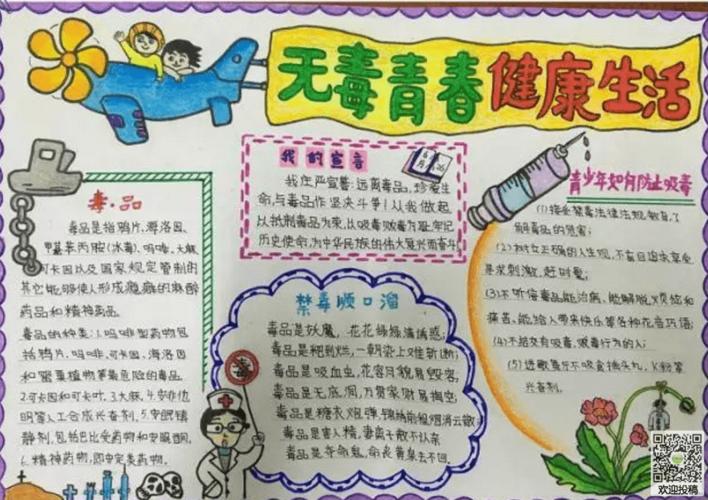 无毒青春健康生活
我的宣言
6月
26
我庄严宣誓:远离毒品,珍爱生
命,与毒品作坚决斗争!从我做起
以抵制毒品为荣,以吸毒贩毒为耻,牢记
历史使命,为中华民族的伟大复兴而奋斗
毒·品
毒品是指鸦片,海洛因,
甲基苯丙胺(冰毒),吗啡,大麻,
可卡因以及国家规定管制的
其它能够使人形成瘾癖的麻醉
药品和精神药品。
毒品的种类:1.吗啡型药物包
括鸦片,吗啡,可卡因,海洛因
和罂粟植物等最危险的毒品
2.可卡因和可卡叶,3.大麻,4.安非他
明等人工合成兴奋剂,5.安眠镇
静剂,包括巴比妥药物和安眠酮,
6.精神药物,即安定类药物。
禁毒顺口溜
毒品是妖魔,花花绿绿清诱惑;
毒品是粑到烂,一朝染上难斩断;
毒品是吸血虫,花容月貌易毁容;
毒品是无底洞,万贯家财易掏空;
毒品是糖衣炮弹,锦绣前程烟消云散;
毒品是害人精,妻离子散不认亲
毒品是夺命鬼,命丧黄泉去不回。
毒
青少年如何防止吸毒
(1)接受禁毒法律法规教育,了
解毒品的危害;
(2)树立正确的人生观,不盲目追求享受
寻求刺激,赶时髦;
(3)不听信毒品能治病,能解脱烦恼和
痛苦,能给人带来快乐等各种花言巧语;
(4)不结交有吸毒、贩毒行为的人;
(5)进歌舞厅不吸食摇头丸,K粉等
兴奋剂。
欢迎投稿